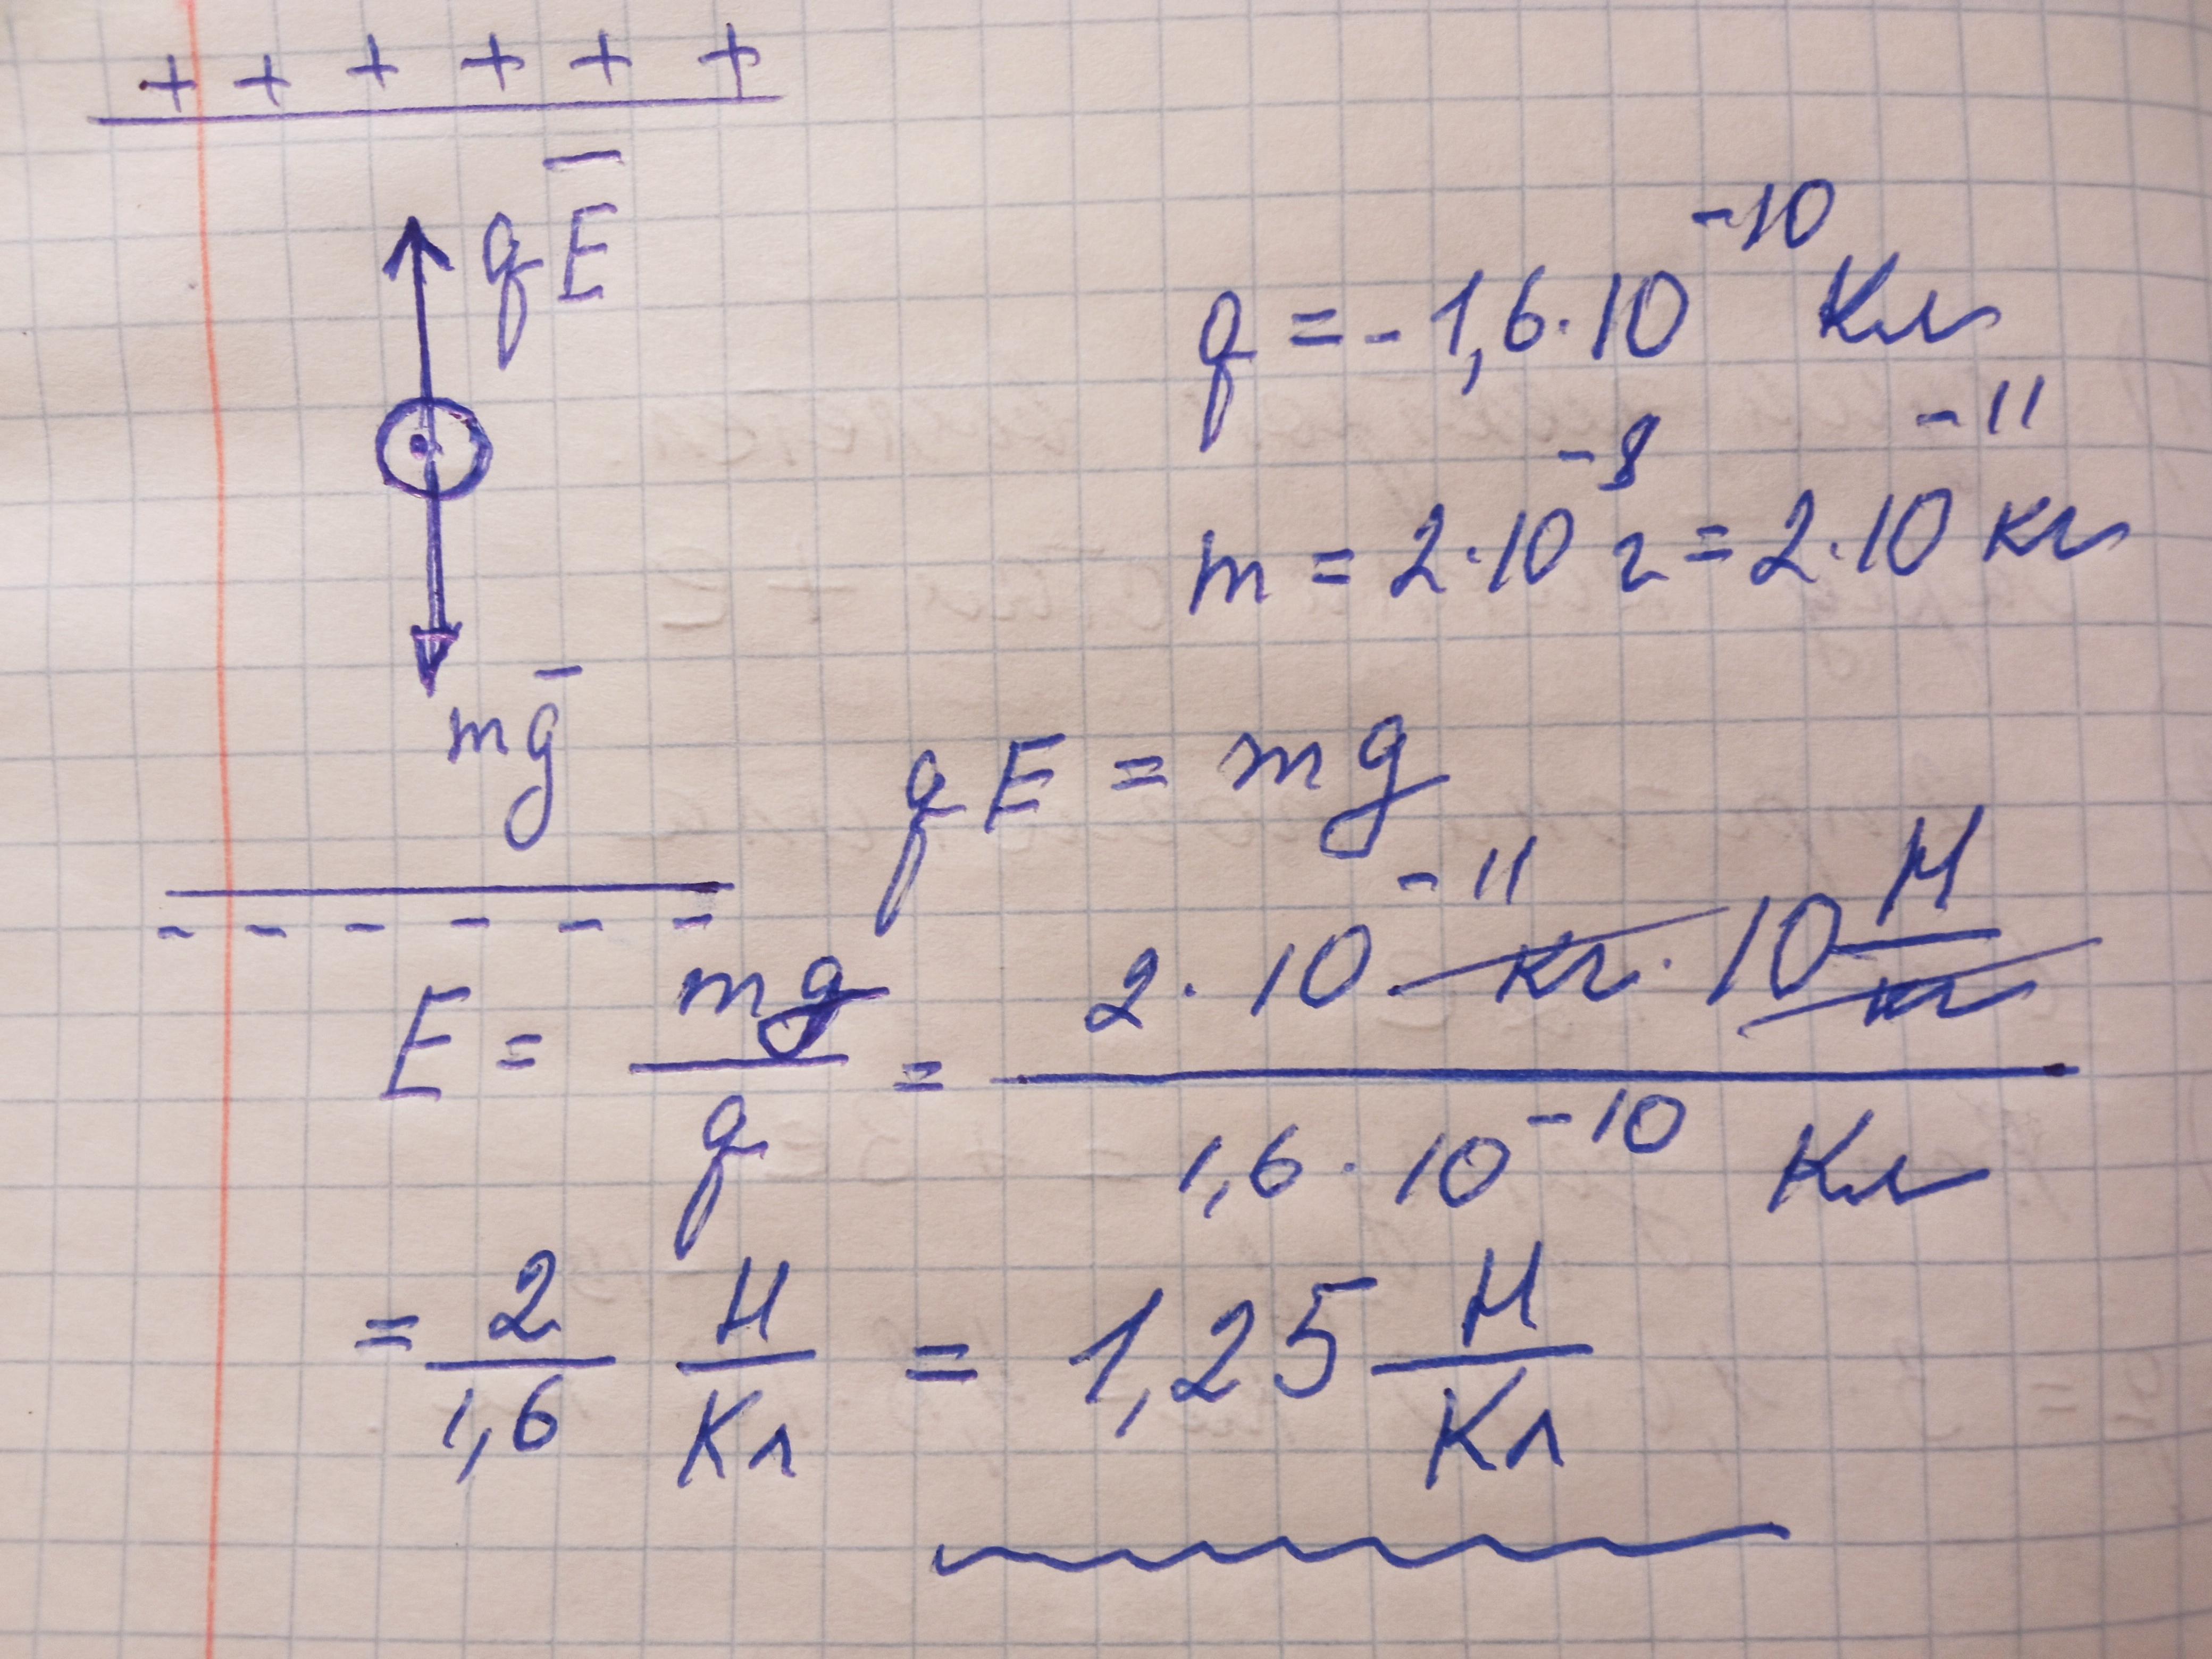 + + + + + +
qE̅
q = - 1,6·10⁻¹⁰ Кл
m = 2·10⁻⁸ г = 2·10⁻¹¹ кг
mg̅
qE = mg
- - - - - -
E = mg/q = (2·10⁻¹¹ кг · 10 Н/кг)/(1,6·10⁻¹⁰ Кл)
= 2/1,6 Н/Кл = 1,25 Н/Кл